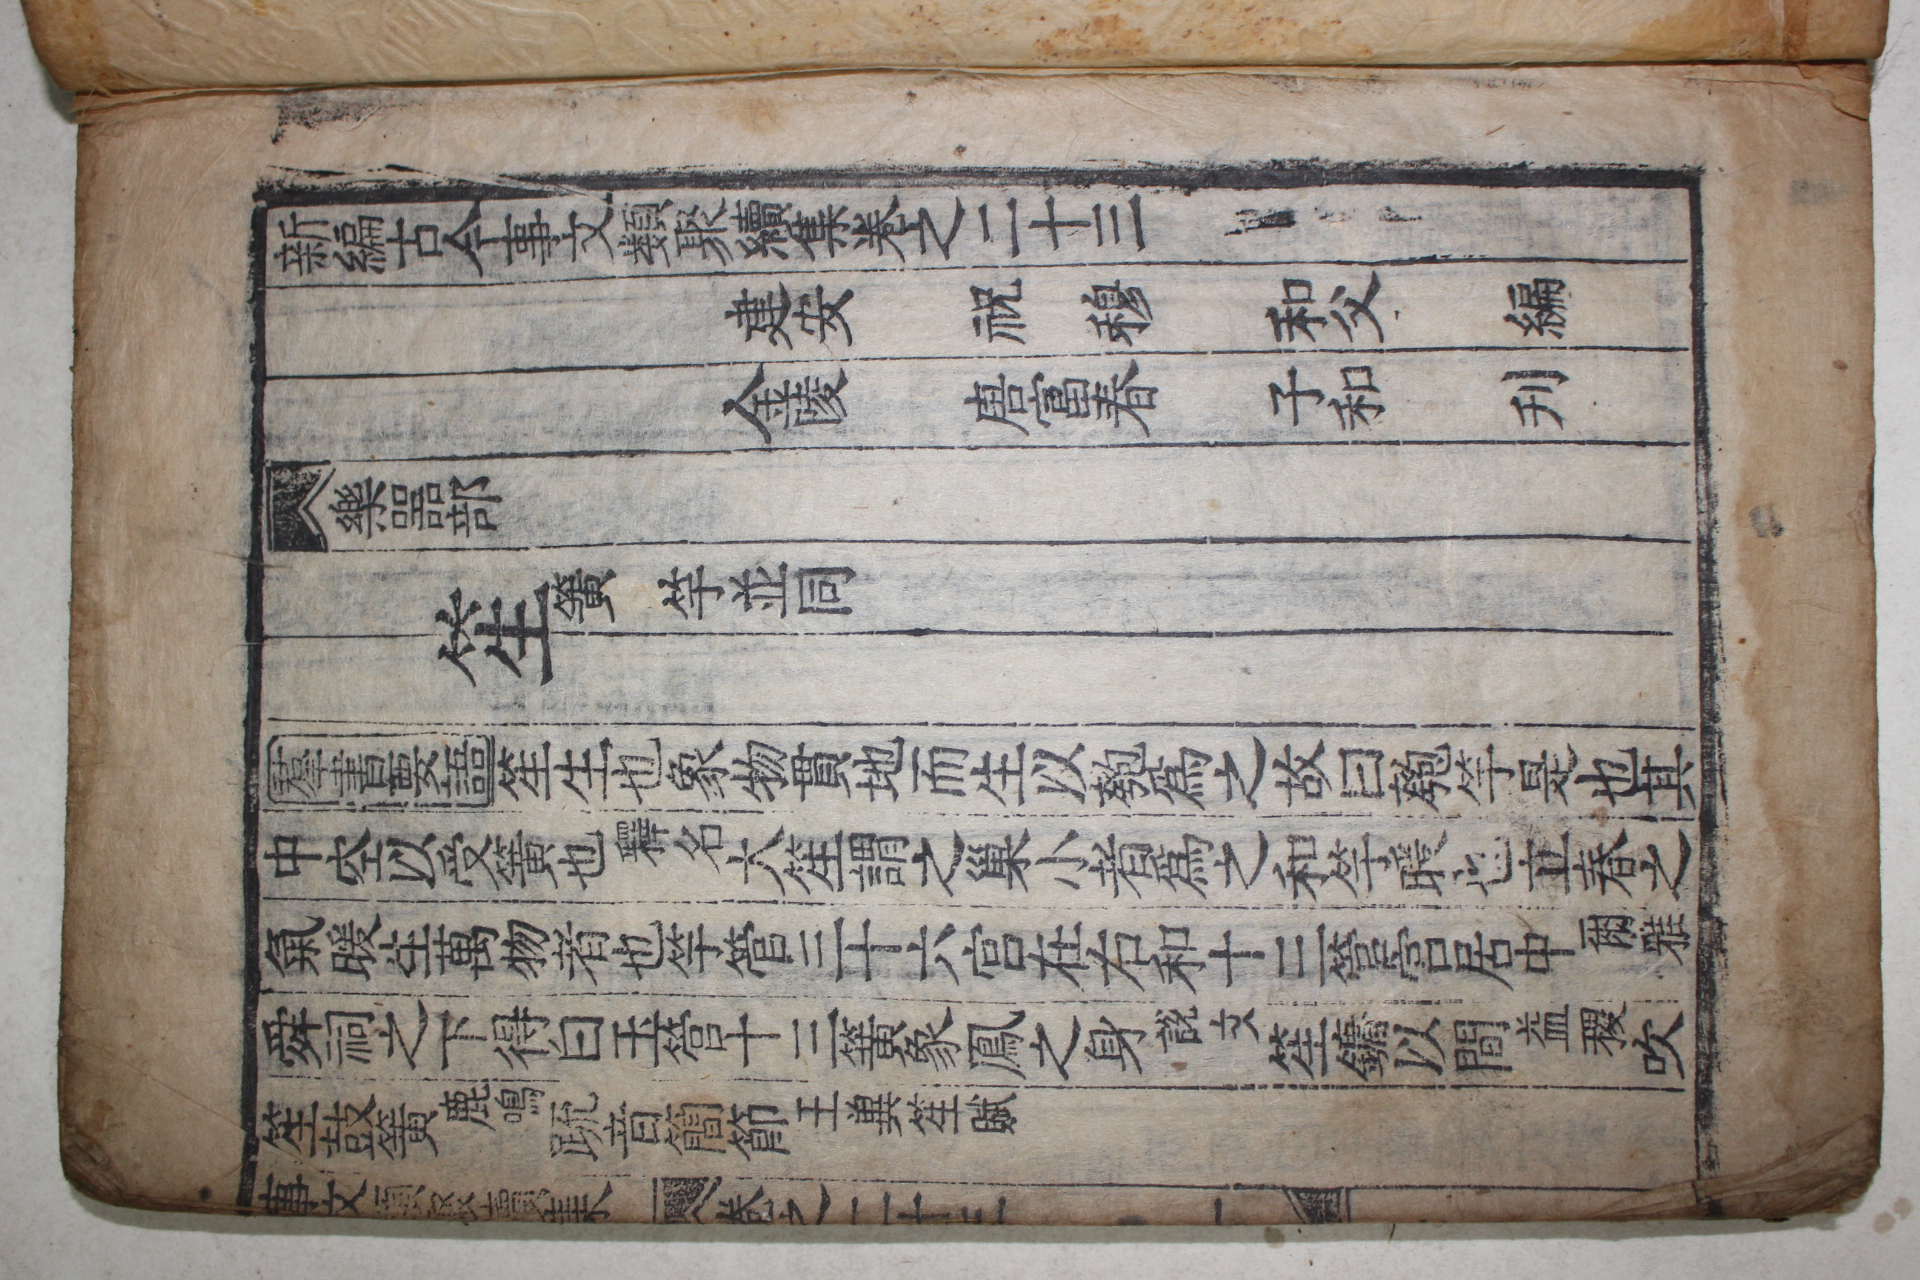 新編古今事文類聚續集卷之二十三
建安 祝 穆 和父 編
金陵 唐富春 子和 刋
樂器部
笙 簧 竽並同
羣書要語 笙生也象物貫地而生以匏爲之故曰匏竽是也其
中空以受簧也 釋名 大笙謂之巢小者爲之和笙 也立春之
氣煖生萬物者也竽管三十六宮在左右和十三管宮居中 爾雅
舜祠之下得白玉管十三簧象鳳之身 說文 笙鏞以間 益稷 吹
笙鼓簧 鹿鳴 疏音簡節 王 笙賦
事文類聚續集 卷之二十三 一